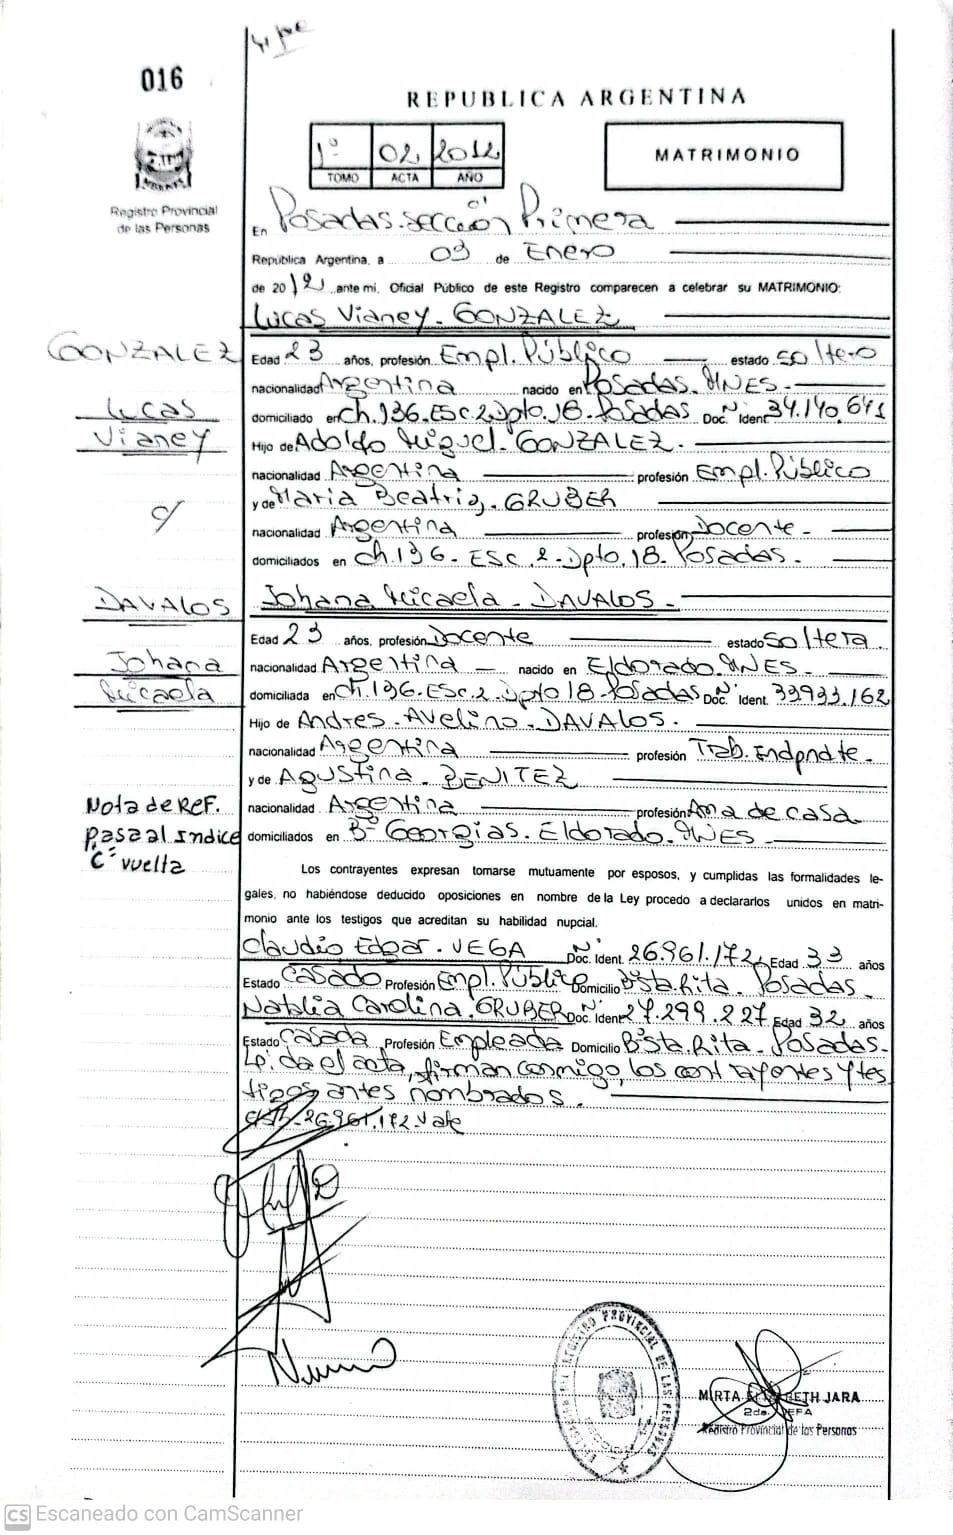 016
REPUBLICA ARGENTINA
1º 02 2012
TOMO ACTA AÑO
MATRIMONIO
Registro Provincial
de las Personas
En Posadas.sección Primera
República Argentina, a 03 de Enero
de 2012 ante mi, Oficial Público de este Registro comparecen a celebrar su MATRIMONIO:
Lucas Vianey. GONZALEZ
GONZALEZ
Lucas
Vianey
Edad 23 años, profesión Empl. Público estado soltero
nacionalidad Argentina nacido en Posadas. MNES.
domiciliado en ch.136.Esc.2.Dpto.18.Posadas Doc. Nº Ident. 34.140.641
Hijo de Adolfo Miguel. GONZALEZ.
nacionalidad Argentina profesión Empl. Público
y de Maria Beatriz. GRUBER
c/
nacionalidad Argentina profesión Docente.
domiciliados en ch.136. Esc. 2. Dpto. 18. Posadas.
DAVALOS
Johana
Micaela
Johana Micaela. DAVALOS.
Edad 23 años, profesión Docente estado soltera.
nacionalidad Argentina nacido en Eldorado. MNES.
domiciliada en ch.136.Esc.2.Dpto 18.Posadas Doc. Nº Ident. 33933.162
Hijo de Andres. Avelino. DAVALOS.
nacionalidad Argentina profesión Trab. Indpndte.
y de Agustina. BENITEZ
nacionalidad Argentina profesión Ama de casa
domiciliados en Bº Georgias. Eldorado. MNES.
Nota de REF.
Pasa al Indice
C vuelta
Los contrayentes expresan tomarse mutuamente por esposos, y cumplidas las formalidades le-
gales, no habiéndose deducido oposiciones en nombre de la Ley procedo a declararlos unidos en matri-
monio ante los testigos que acreditan su habilidad nupcial.
Claudio Edgar. VEGA Doc. Nº Ident. 26.961.172 Edad 33 años
Estado Casado Profesión Empl. Público Domicilio Bº Sta. Rita. Posadas.
Natalia Carolina. GRUBER Doc. Nº Ident. 27.299.227 Edad 32 años
Estado Casada Profesión Empleada Domicilio Bº Sta. Rita. Posadas.
Leida el acta, firman conmigo, los contrayentes y tes
tigos antes nombrados.
26.961.172. Vale
REGISTRO PROVINCIAL DE LAS PERSONAS
MIRTA JARA
2da. JEFA
Registro Provincial de las Personas
CS Escaneado con CamScanner